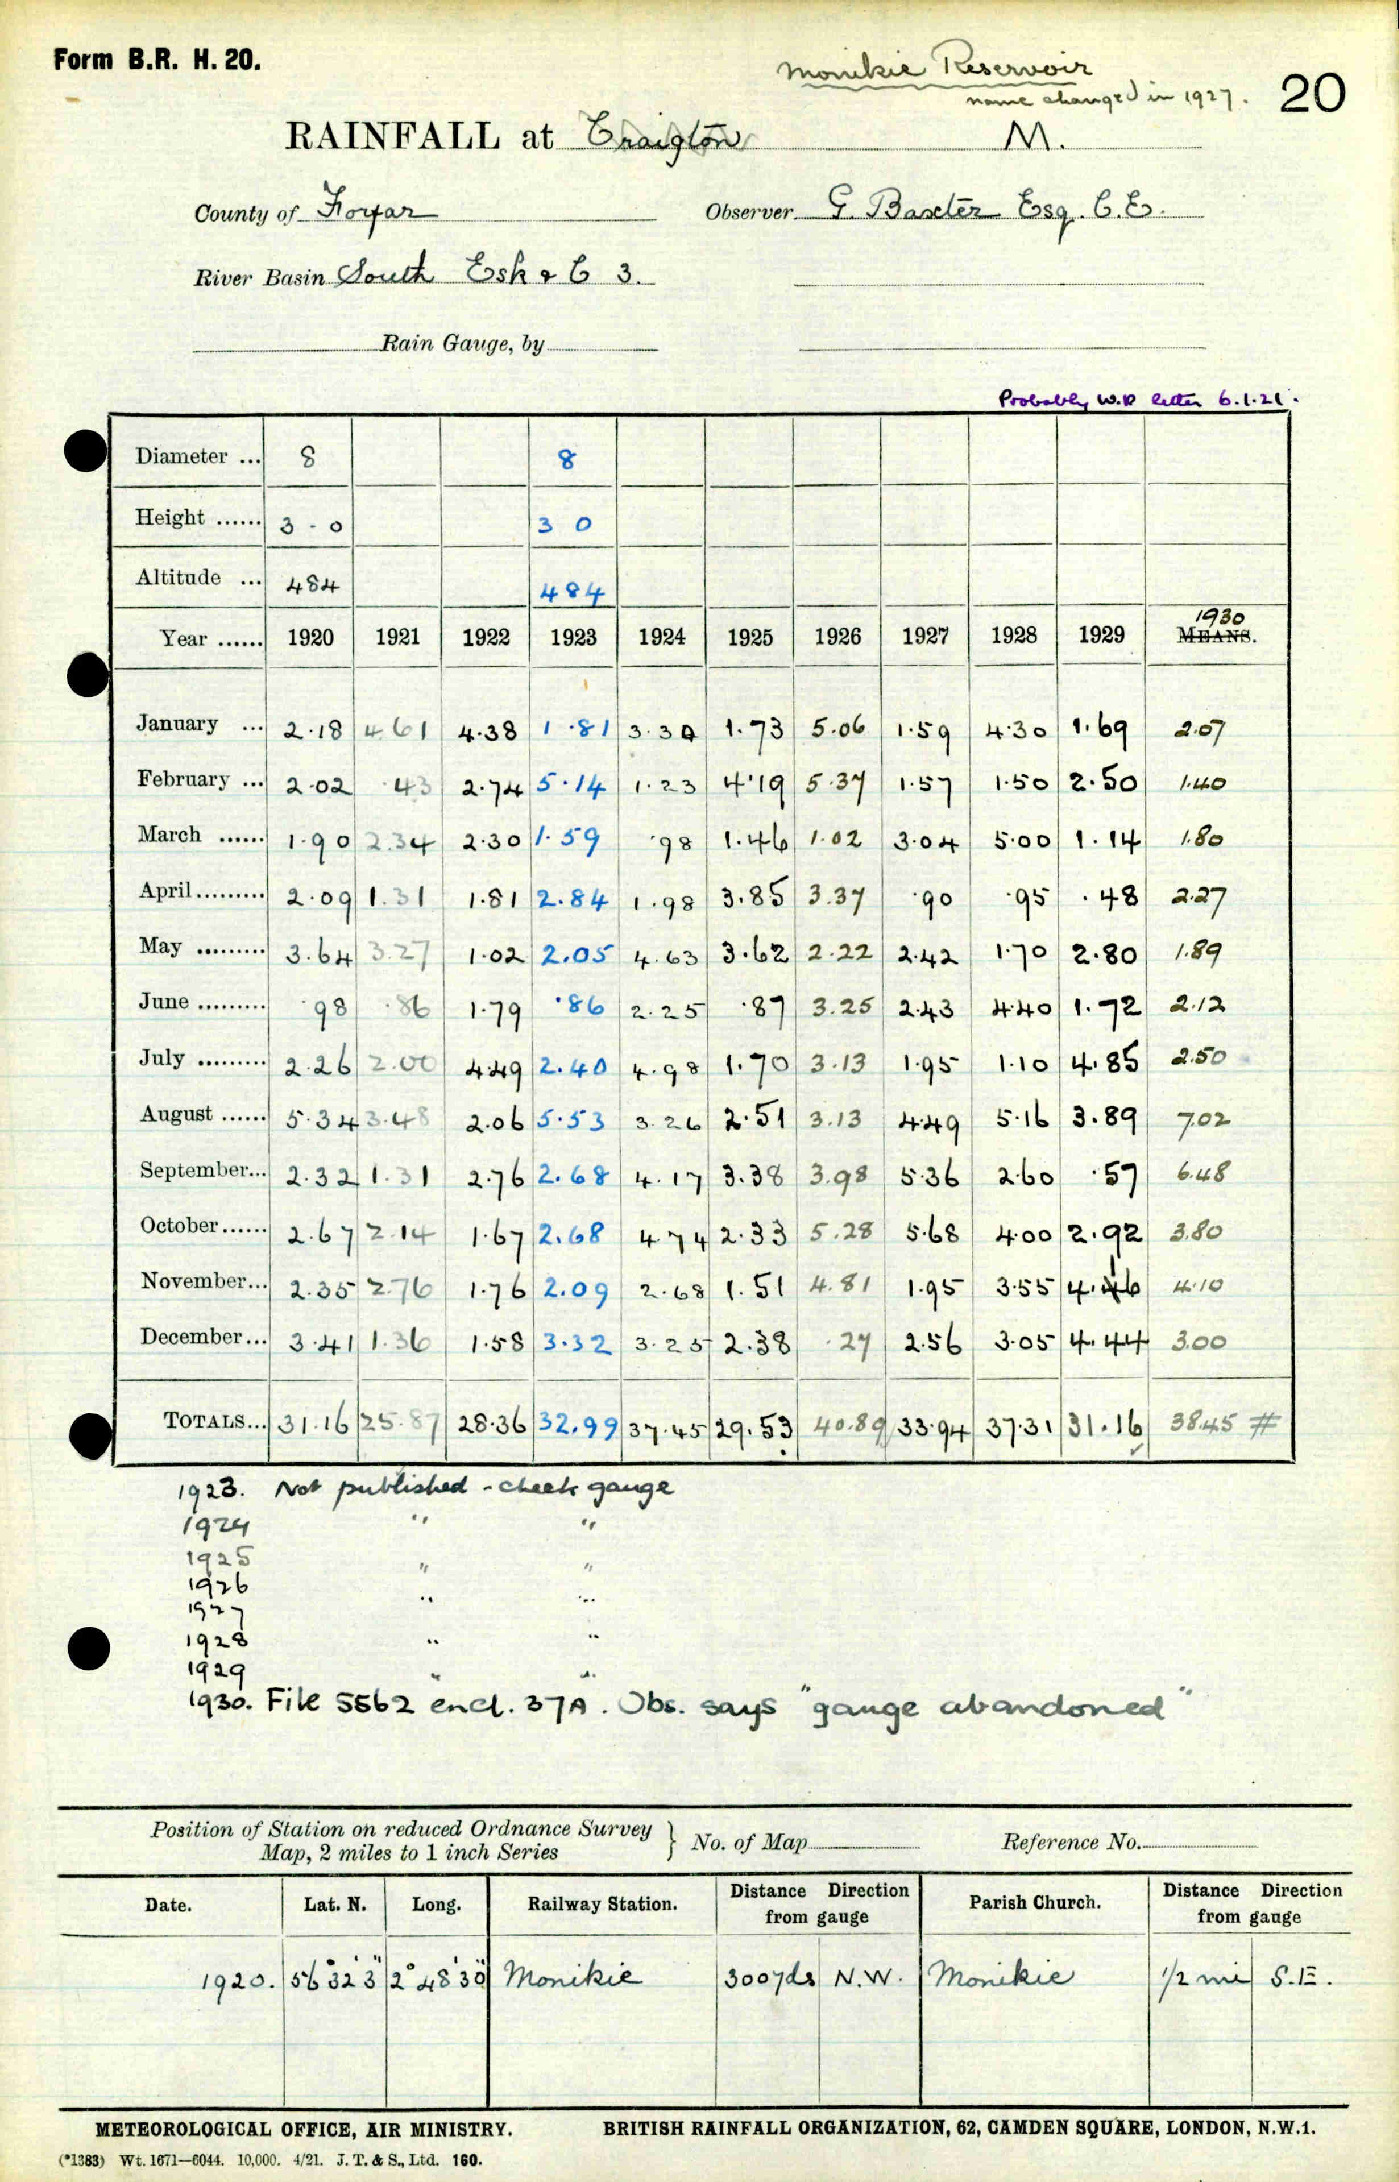 Form B.R. H. 20.
Monikie Reservoir
name changed in 1927.
20
RAINFALL at Craigton M.
County of Forfar Observer G. Baxter Esq. C.E.
River Basin South Esk & C 3.
Rain Gauge, by
Probably W.R letter 6.1.21.
Diameter ... 8 8
Height ...... 3 - 0 3 0
Altitude ... 484 484
1930
Year ...... 1920 1921 1922 1923 1924 1925 1926 1927 1928 1929 MEANS.
January ... 2.18 4.61 4.38 1.81 3.30 1.73 5.06 1.59 4.30 1.69 2.07
February ... 2.02 .43 2.74 5.14 1.23 4.19 5.37 1.57 1.50 2.50 1.40
March ...... 1.90 2.34 2.30 1.59 .98 1.46 1.02 3.04 5.00 1.14 1.80
April......... 2.09 1.31 1.81 2.84 1.98 3.85 3.37 .90 .95 .48 2.27
May ......... 3.64 3.27 1.02 2.05 4.63 3.62 2.22 2.42 1.70 2.80 1.89
June ......... .98 .86 1.79 .86 2.25 .87 3.25 2.43 4.40 1.72 2.12
July ......... 2.26 2.00 4.49 2.40 4.98 1.70 3.13 1.95 1.10 4.85 2.50
August ...... 5.34 3.48 2.06 5.53 3.26 2.51 3.13 4.49 5.16 3.89 7.02
September... 2.32 1.31 2.76 2.68 4.17 3.38 3.98 5.36 2.60 .57 6.48
October...... 2.67 2.14 1.67 2.68 4.74 2.33 5.28 5.68 4.00 2.92 3.80
November... 2.35 2.76 1.76 2.09 2.68 1.51 4.81 1.95 3.55 4.16 4.10
December... 3.41 1.36 1.58 3.32 3.25 2.38 .27 2.56 3.05 4.44 3.00
TOTALS... 31.16 25.87 28.36 32.99 37.45 29.53 40.89 33.94 37.31 31.16 38.45 #
1923. Not published - check gauge
1924 " "
1925 " "
1926 " "
1927
1928 " "
1929 " "
1930. File 5562 encl. 37A. Obs. says "gauge abandoned"
Position of Station on reduced Ordnance Survey
Map, 2 miles to 1 inch Series } No. of Map Reference No.
Date. Lat. N. Long. Railway Station. Distance from gauge Direction Parish Church. Distance from gauge Direction
1920. 56° 32' 3" 2° 48' 30" Monikie 300yds N.W. Monikie 1/2 mi S.E.
METEOROLOGICAL OFFICE, AIR MINISTRY. BRITISH RAINFALL ORGANIZATION, 62, CAMDEN SQUARE, LONDON, N.W.1.
(*1383) Wt. 1671—6044. 10,000. 4/21. J. T. & S., Ltd. 160.